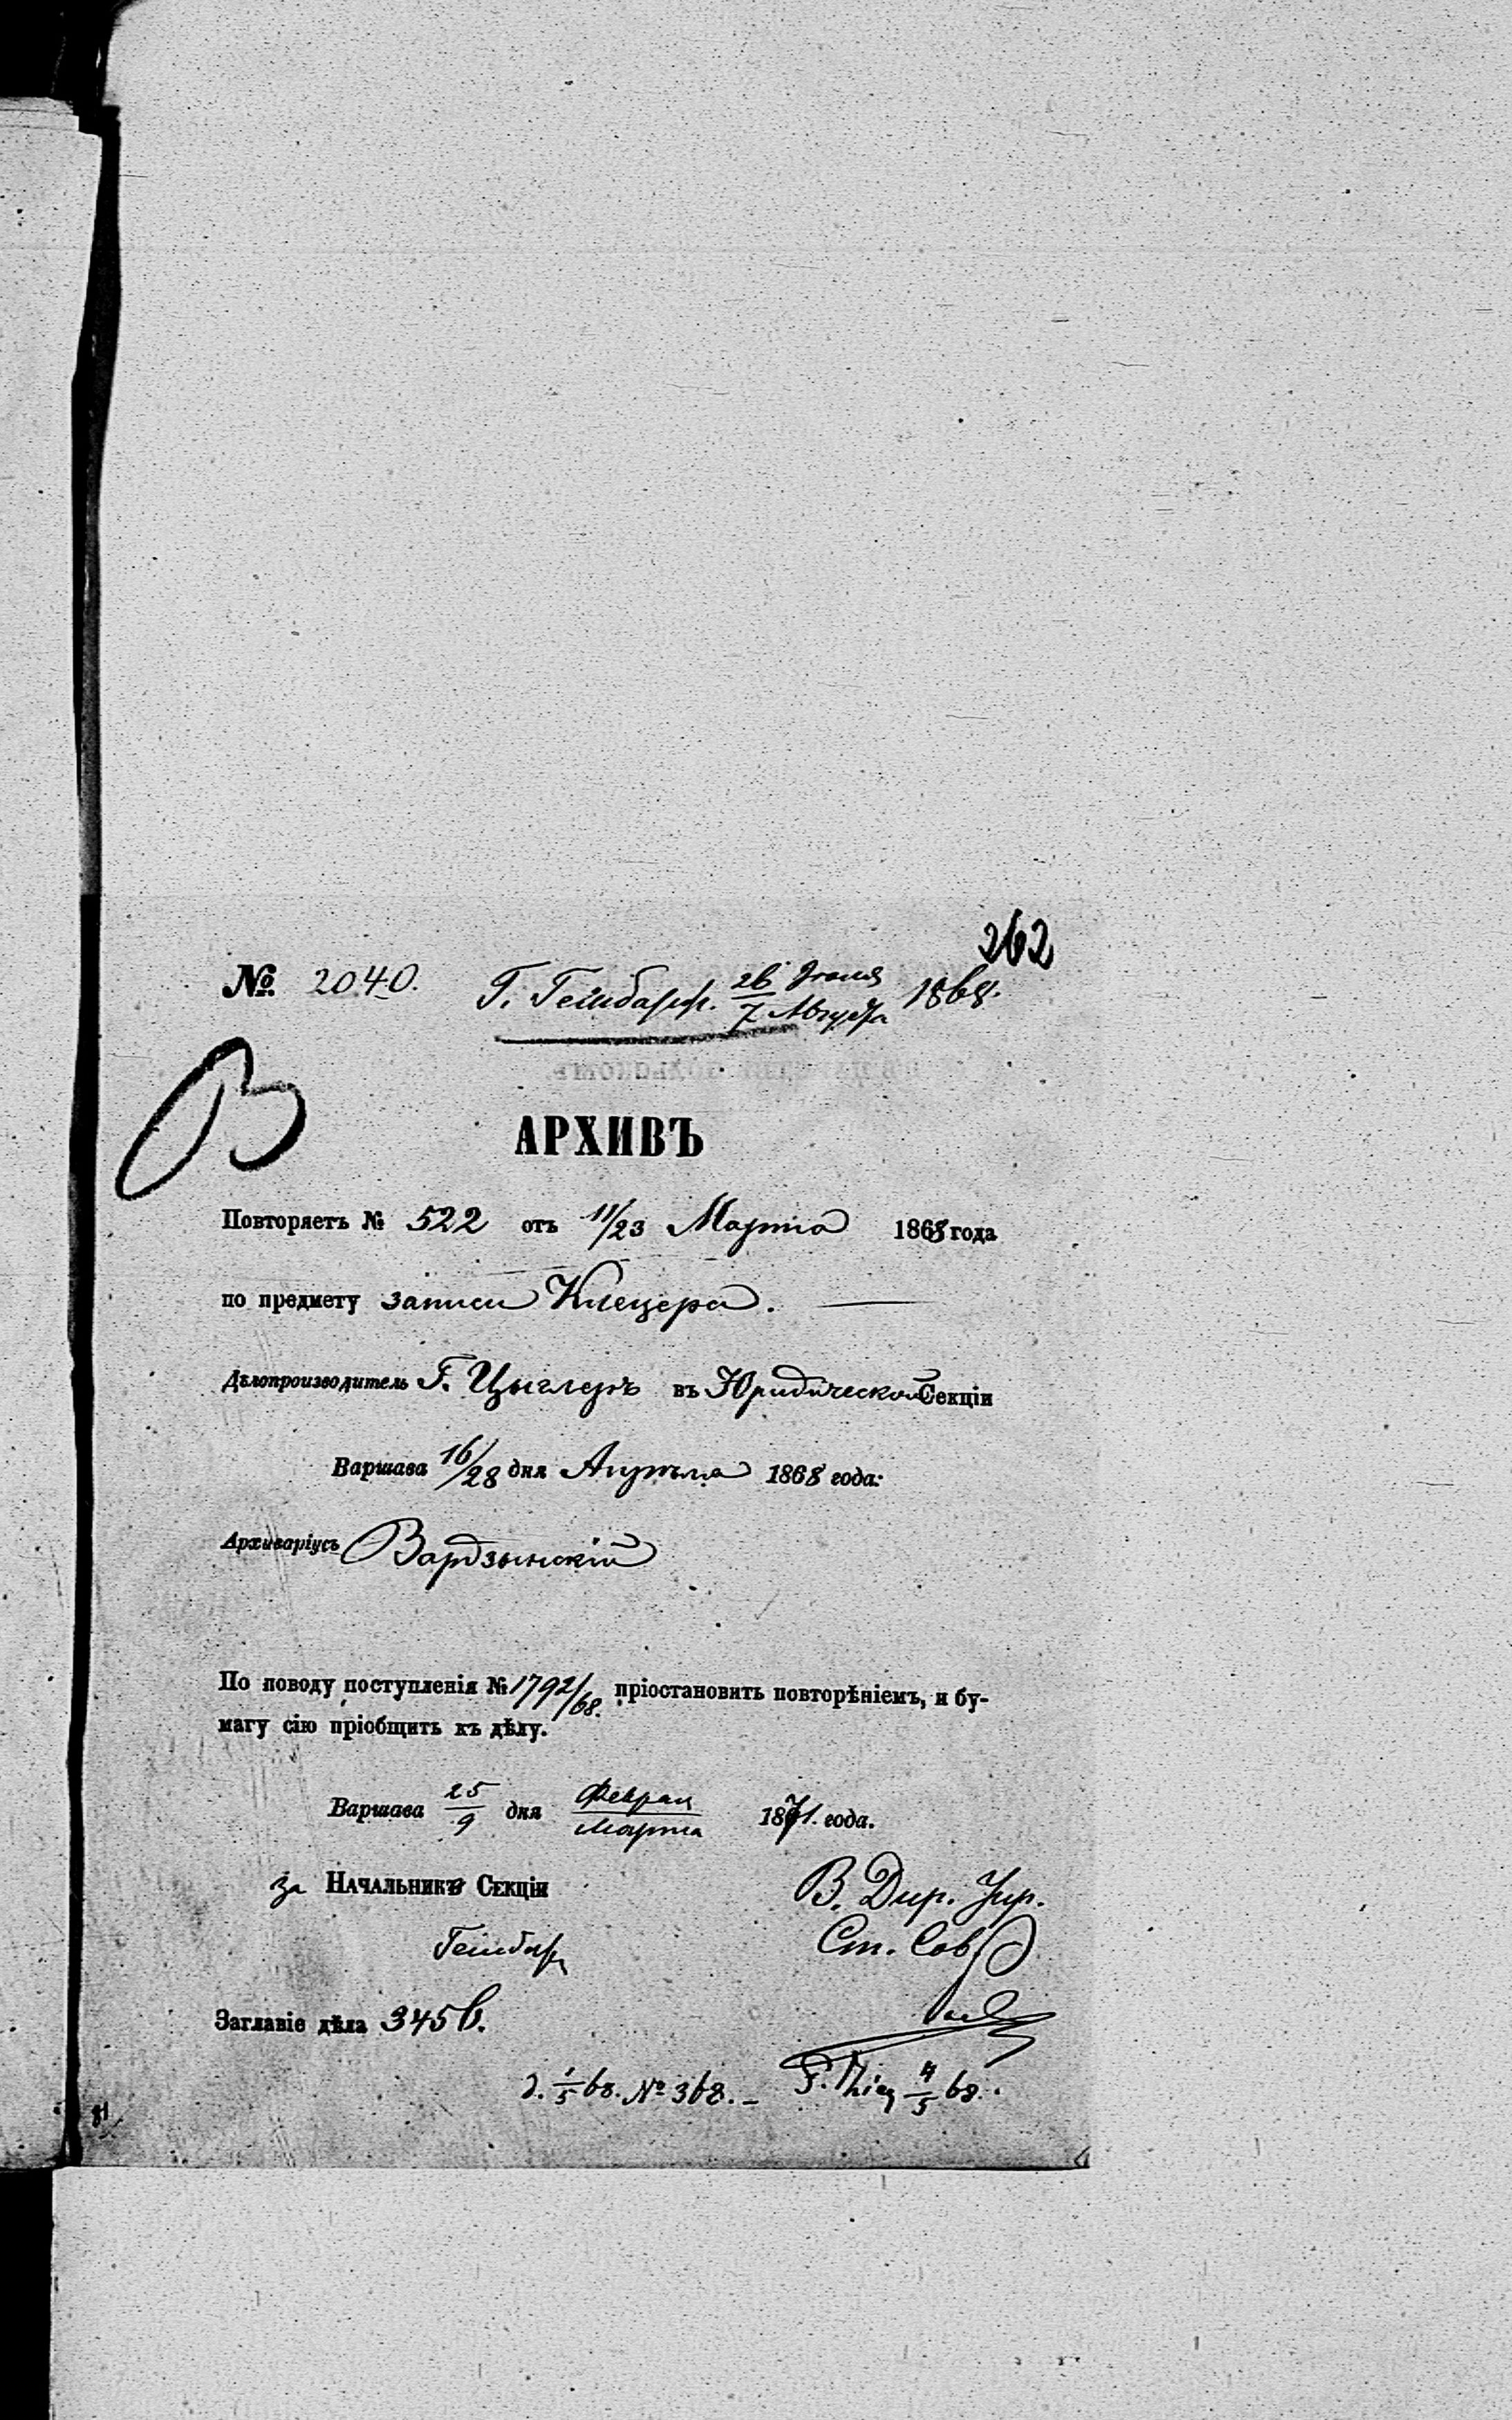 262
№ 2040. Г. Геинбарх. 26 Іюля / 7 Августа 1868.
В
АРХИВЪ
Повторяетъ № 522 отъ 11/23 Марта 1868 года
по предмету записи Клецера.
Дѣлопроизводитель Г. Цыглеръ въ Юридической Секціи
Варшава 16/28 дня Апрѣля 1868 года:
Архиваріусъ Вардзынскій
По поводу поступленія № 1792/68. пріостановить повторѣніемъ, и бу-
магу сію пріобщить къ дѣлу.
Варшава 25/9 дня Февраля/Марта 1871. года.
за Начальника Секціи
В. Дир. Юр.
Ст. Сов.
Заглавіе дѣла 345 в.
д. 1/5 68. № 368. 4/5 68.